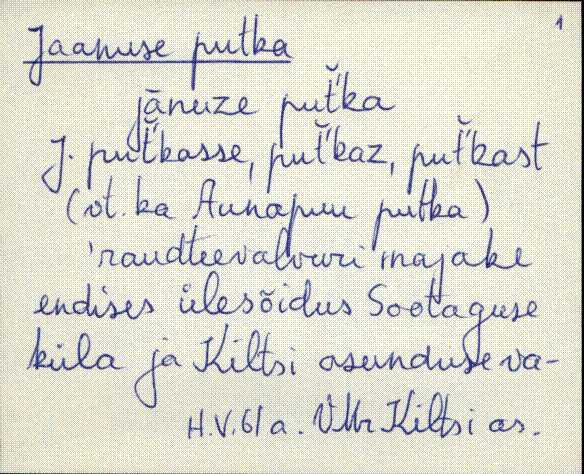 1
Jaanuse putka
jānuze put̆'ka
J. put̆'kasse, put̆'kaz, put̆'kast
(vt. ka Aunapuu putka)
'raudteevalvuri majake
endises ülesõidus Sootaguse
küla ja Kiltsi asunduse va-
H.V. 61 a. VMr Kiltsi as.